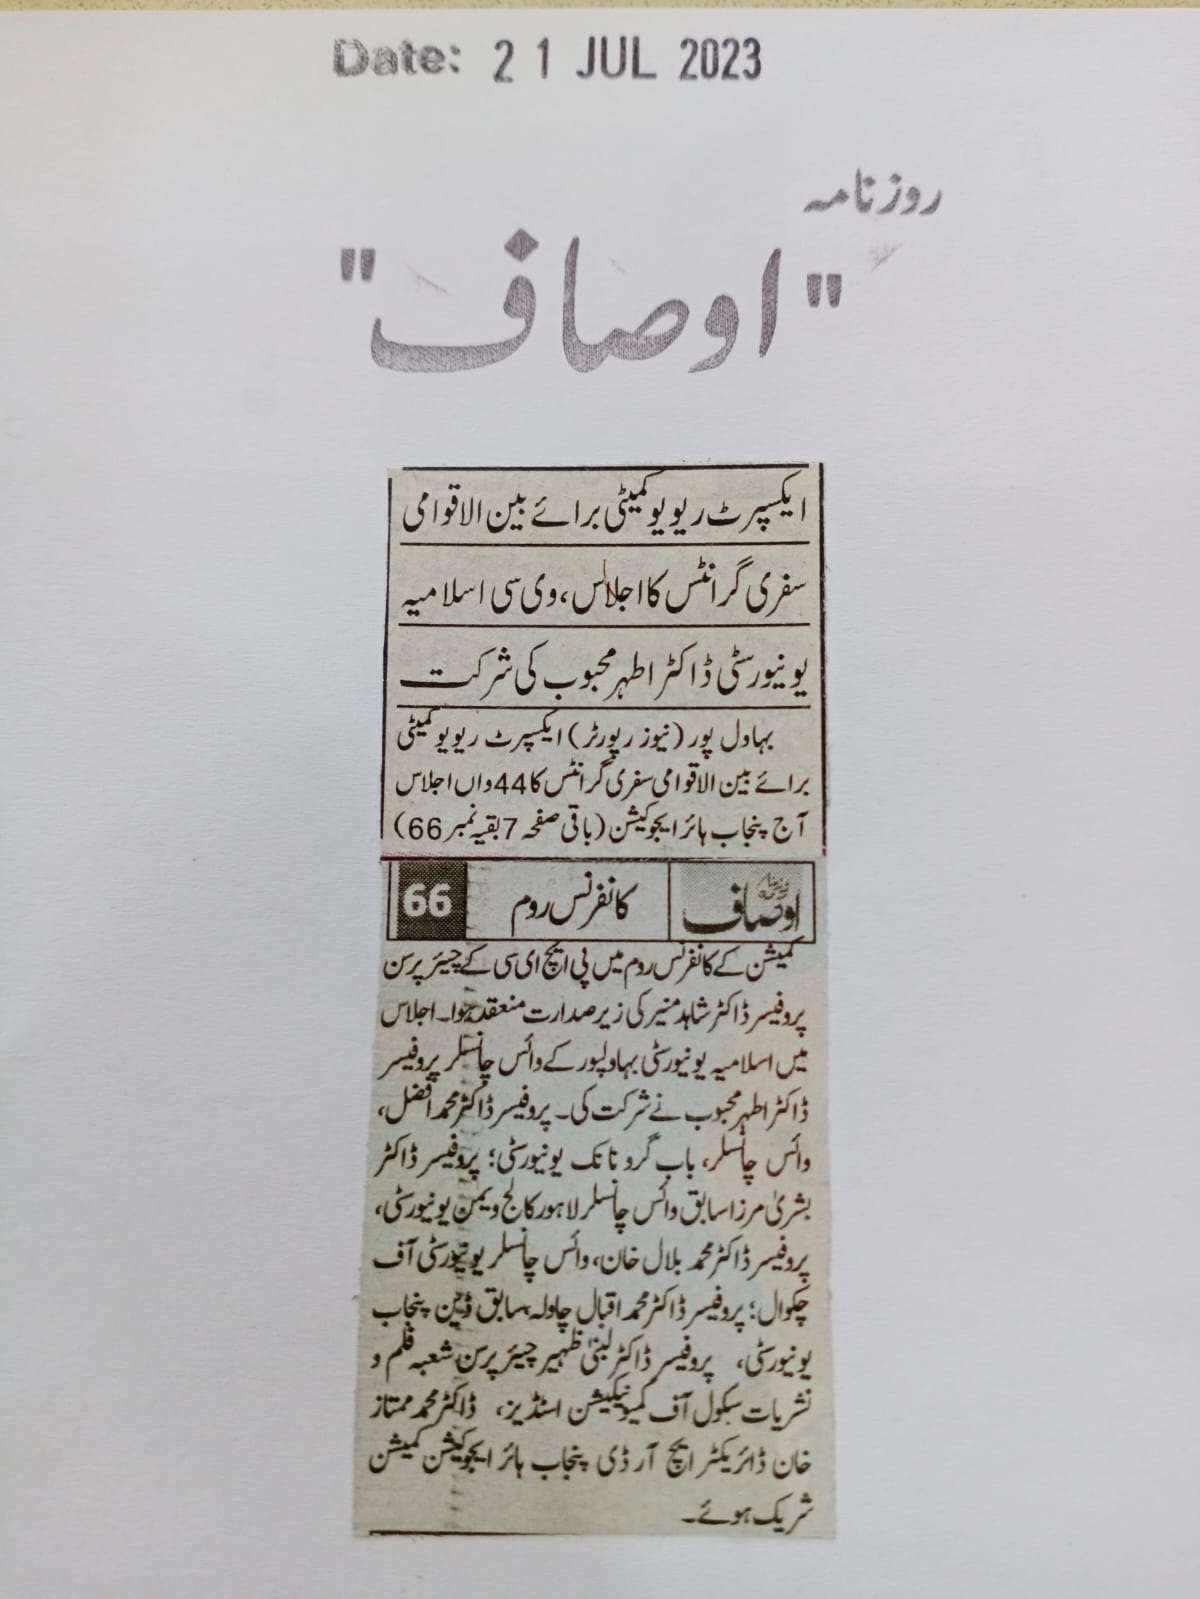 Date: 21 JUL 2023
روزنامہ
"اوصاف"
ایکسپرٹ ریویو کمیٹی برائے بین الاقوامی
سفری گرانٹس کا اجلاس، وی سی اسلامیہ
یونیورسٹی ڈاکٹر اطہر محبوب کی شرکت
بہاول پور (نیوز رپورٹر) ایکسپرٹ ریویو کمیٹی
برائے بین الاقوامی سفری گرانٹس کا 44 واں اجلاس
آج پنجاب ہائر ایجوکیشن (باقی صفحہ 7 بقیہ نمبر 66)
روزنامہ اوصاف کانفرنس روم 66
کمیشن کے کانفرنس روم میں پی ایچ ای سی کے چیئر پرسن
پروفیسر ڈاکٹر شاہد منیر کی زیر صدارت منعقد ہوا۔ اجلاس
میں اسلامیہ یونیورسٹی بہاولپور کے وائس چانسلر پروفیسر
ڈاکٹر اطہر محبوب نے شرکت کی۔ پروفیسر ڈاکٹر محمد افضل،
وائس چانسلر، باب گرو نانک یونیورسٹی؛ پروفیسر ڈاکٹر
بشریٰ مرزا سابق وائس چانسلر لاہور کالج ویمن یونیورسٹی،
پروفیسر ڈاکٹر محمد بلال خان، وائس چانسلر یونیورسٹی آف
چکوال؛ پروفیسر ڈاکٹر محمد اقبال چاولہ سابق ڈین پنجاب
یونیورسٹی، پروفیسر ڈاکٹر لبنیٰ ظہیر چیئر پرسن شعبہ فلم و
نشریات سکول آف کمیونیکیشن اسٹڈیز، ڈاکٹر محمد ممتاز
خان ڈائریکٹر ایچ آر ڈی پنجاب ہائر ایجوکیشن کمیشن
شریک ہوئے۔